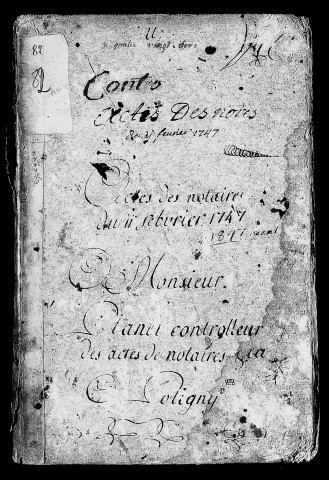 82
82
quatre vingt deux
Contro
Actes Des notres
Du 11 fevrier 1747
Actes des notaires
du 11 febvrier 1747
A Monsieur.
Planet controlleur
des actes de notaires
Poligny